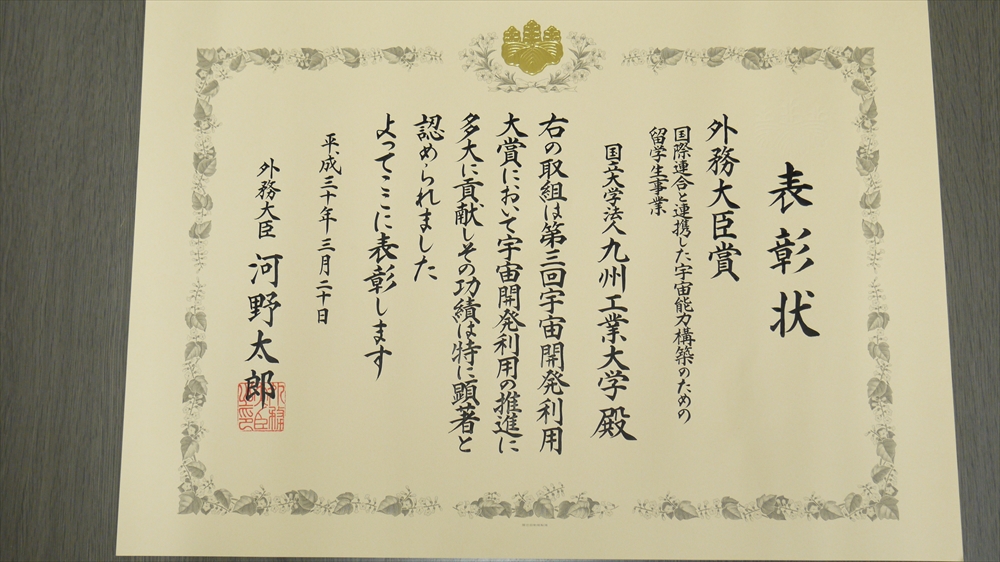 表彰状
外務大臣賞
国際連合と連携した宇宙能力構築のための
留学生事業
国立大学法人九州工業大学殿
右の取組は第三回宇宙開発利用
大賞において宇宙開発利用の推進に
多大に貢献しその功績は特に顕著と
認められました
よってここに表彰します
平成三十年三月二十日
外務大臣 河野太郎